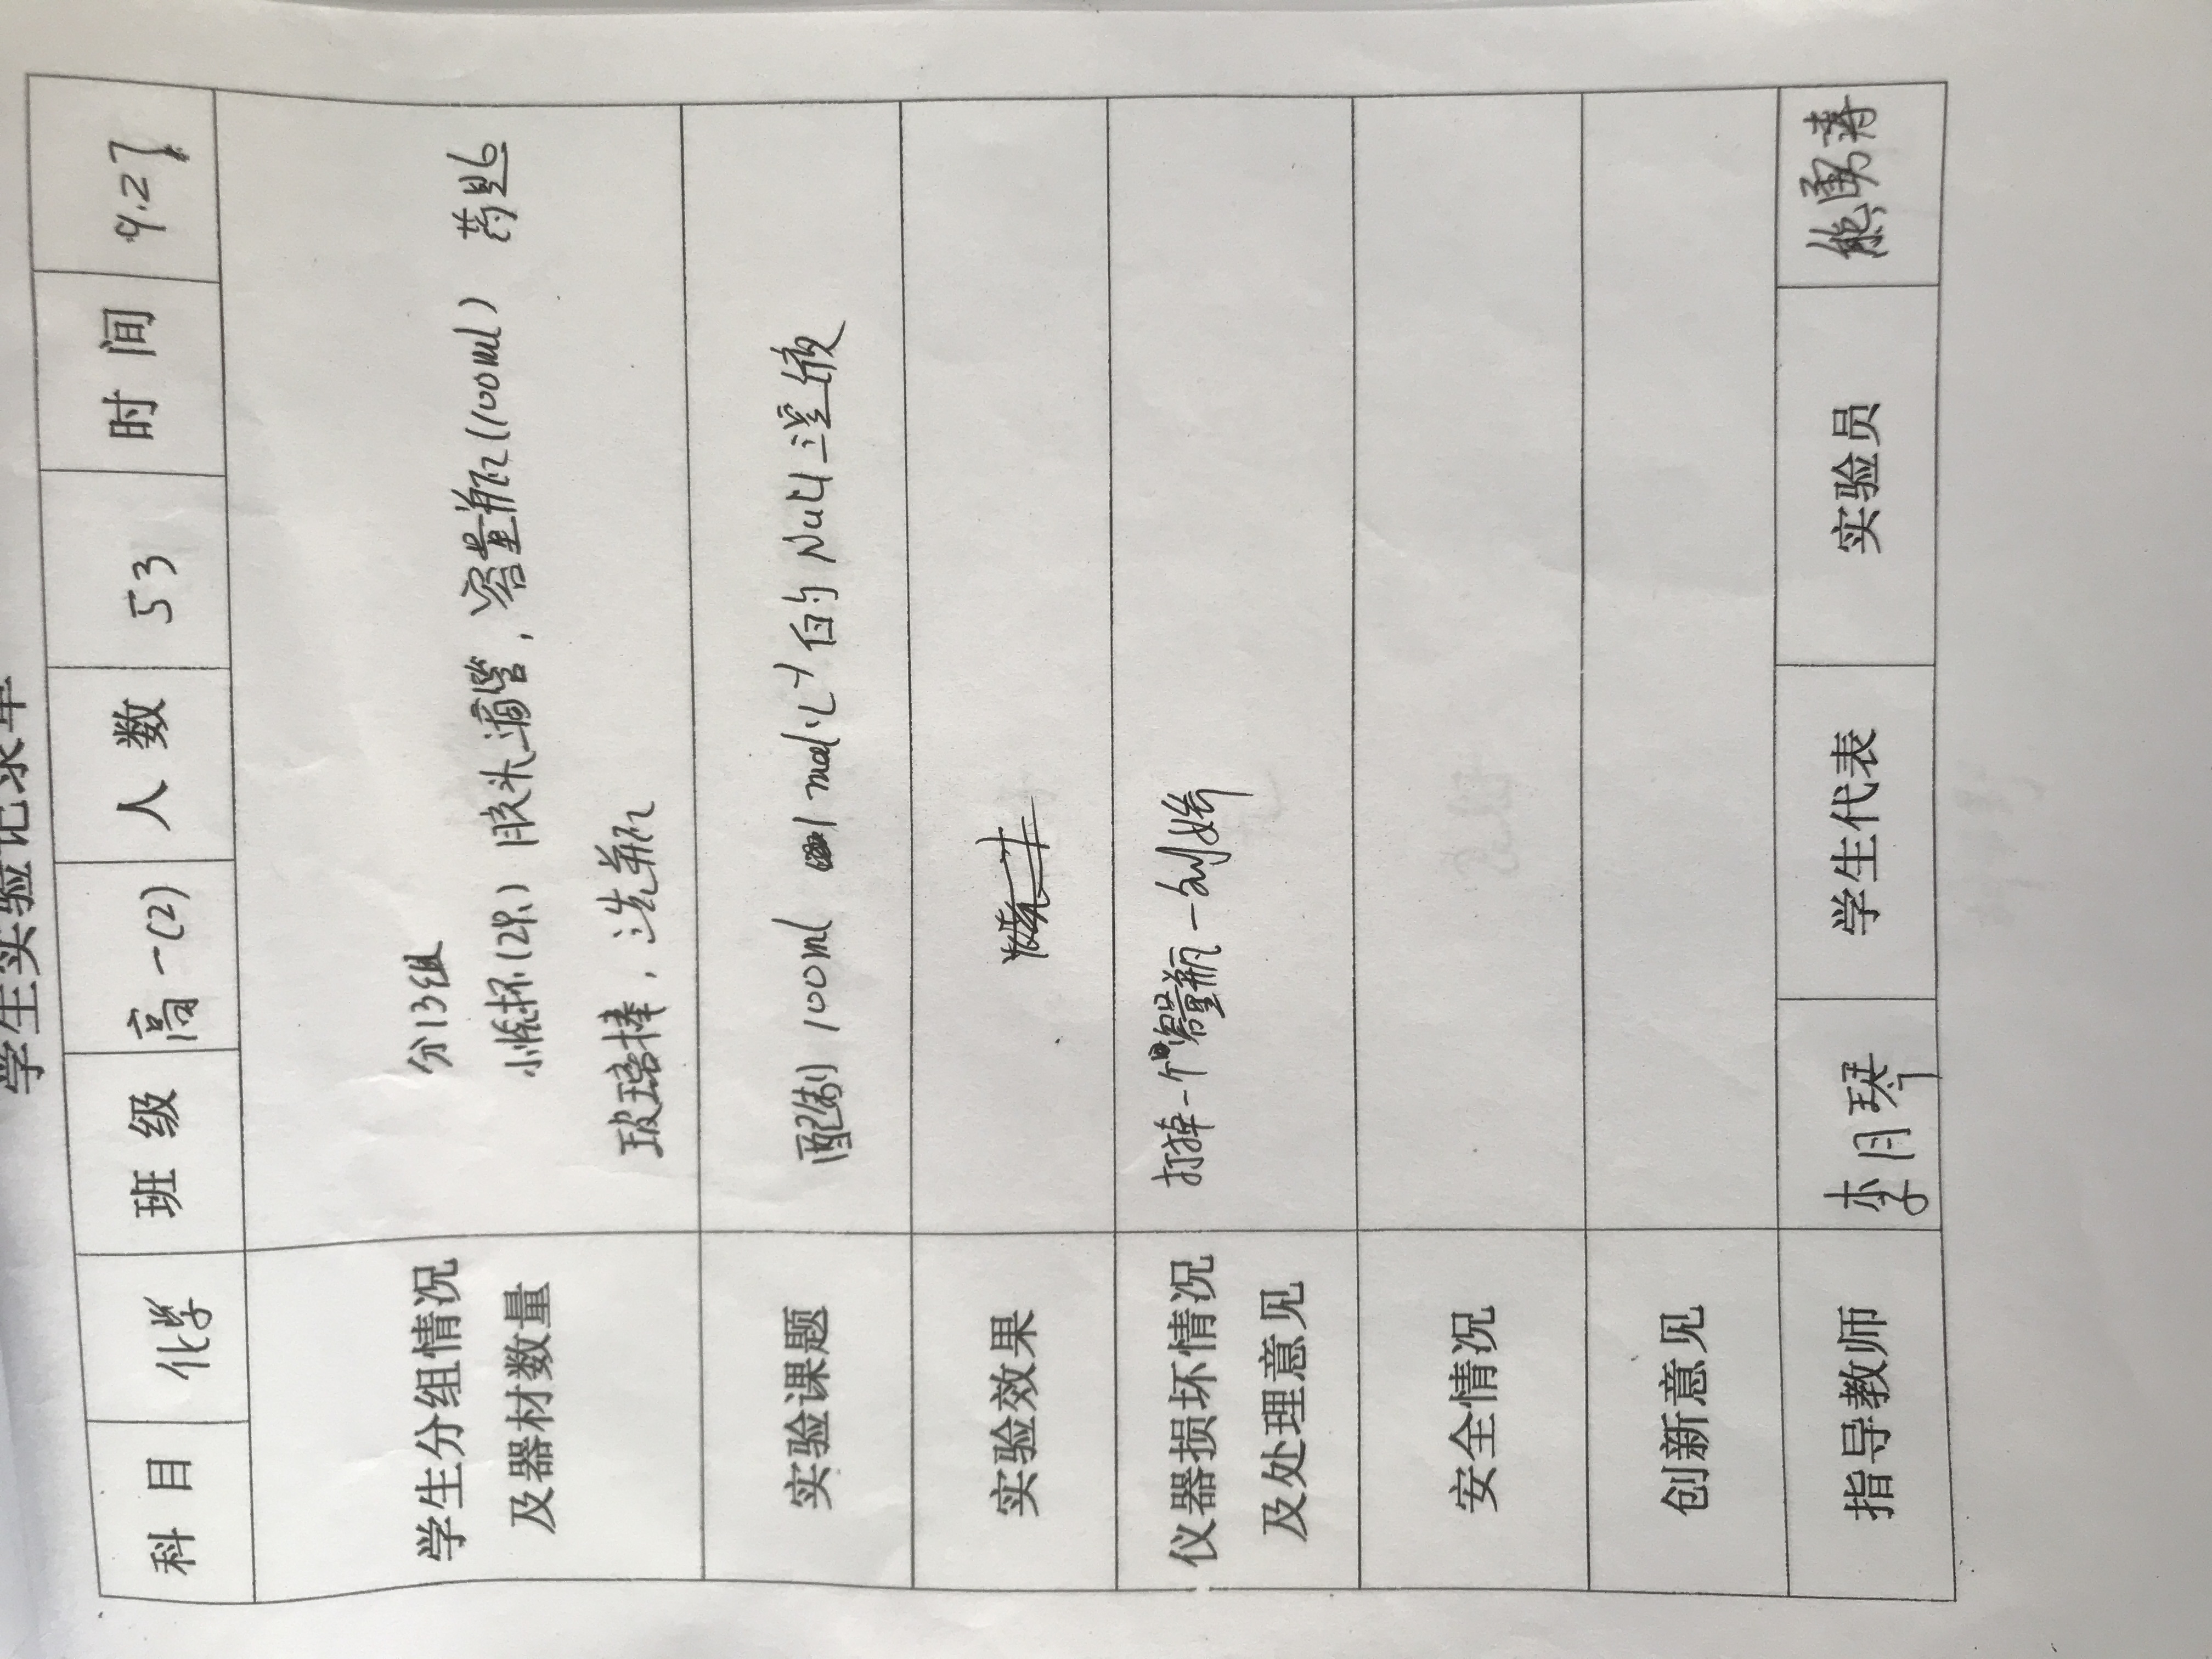 学生实验记录单
科目 化学 班级 高一(2) 人数 53 时间 9.27
学生分组情况
及器材数量
分13组
小烧杯(2个) 胶头滴管, 容量瓶(100ml) 药匙
玻璃棒, 洗瓶
实验课题 配制 100ml 1mol·L⁻¹的NaCl溶液
实验效果
仪器损坏情况
及处理意见
打掉一个容量瓶—刘娇
安全情况
创新意见
指导教师 李月琴 学生代表 实验员 熊勇涛